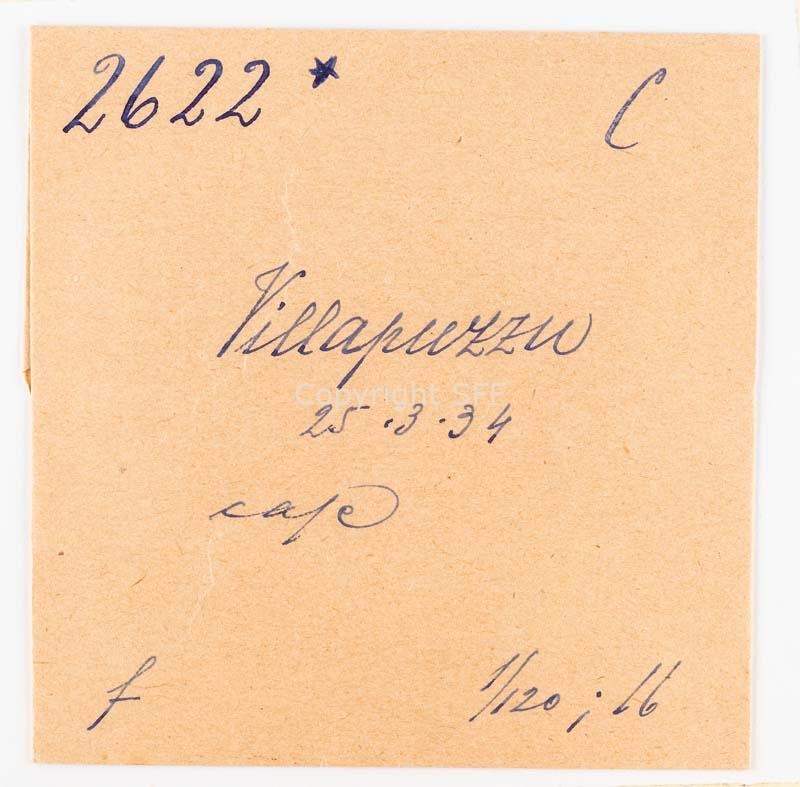 2622 * C
Villapuzzu
Copyright SFF
25.3.34
f 1/120; 16